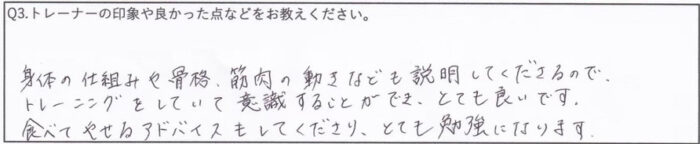 Q3.トレーナーの印象や良かった点などをお教えください。
身体の仕組みや骨格、筋肉の動きなども説明してくださるので、
トレーニングをしていて意識することができ、とても良いです。
食べてやせるアドバイスもしてくださり、とても勉強になります。